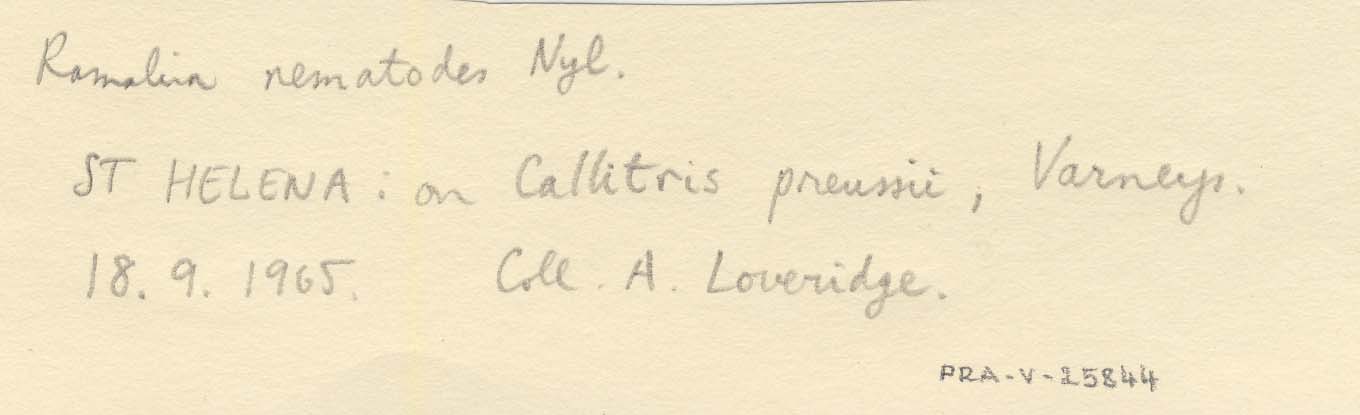 Ramalina nematodes Nyl.
ST HELENA : on Callitris preussii, Varneys.
18. 9. 1965. Coll. A. Loveridge.
PRA-V-25844